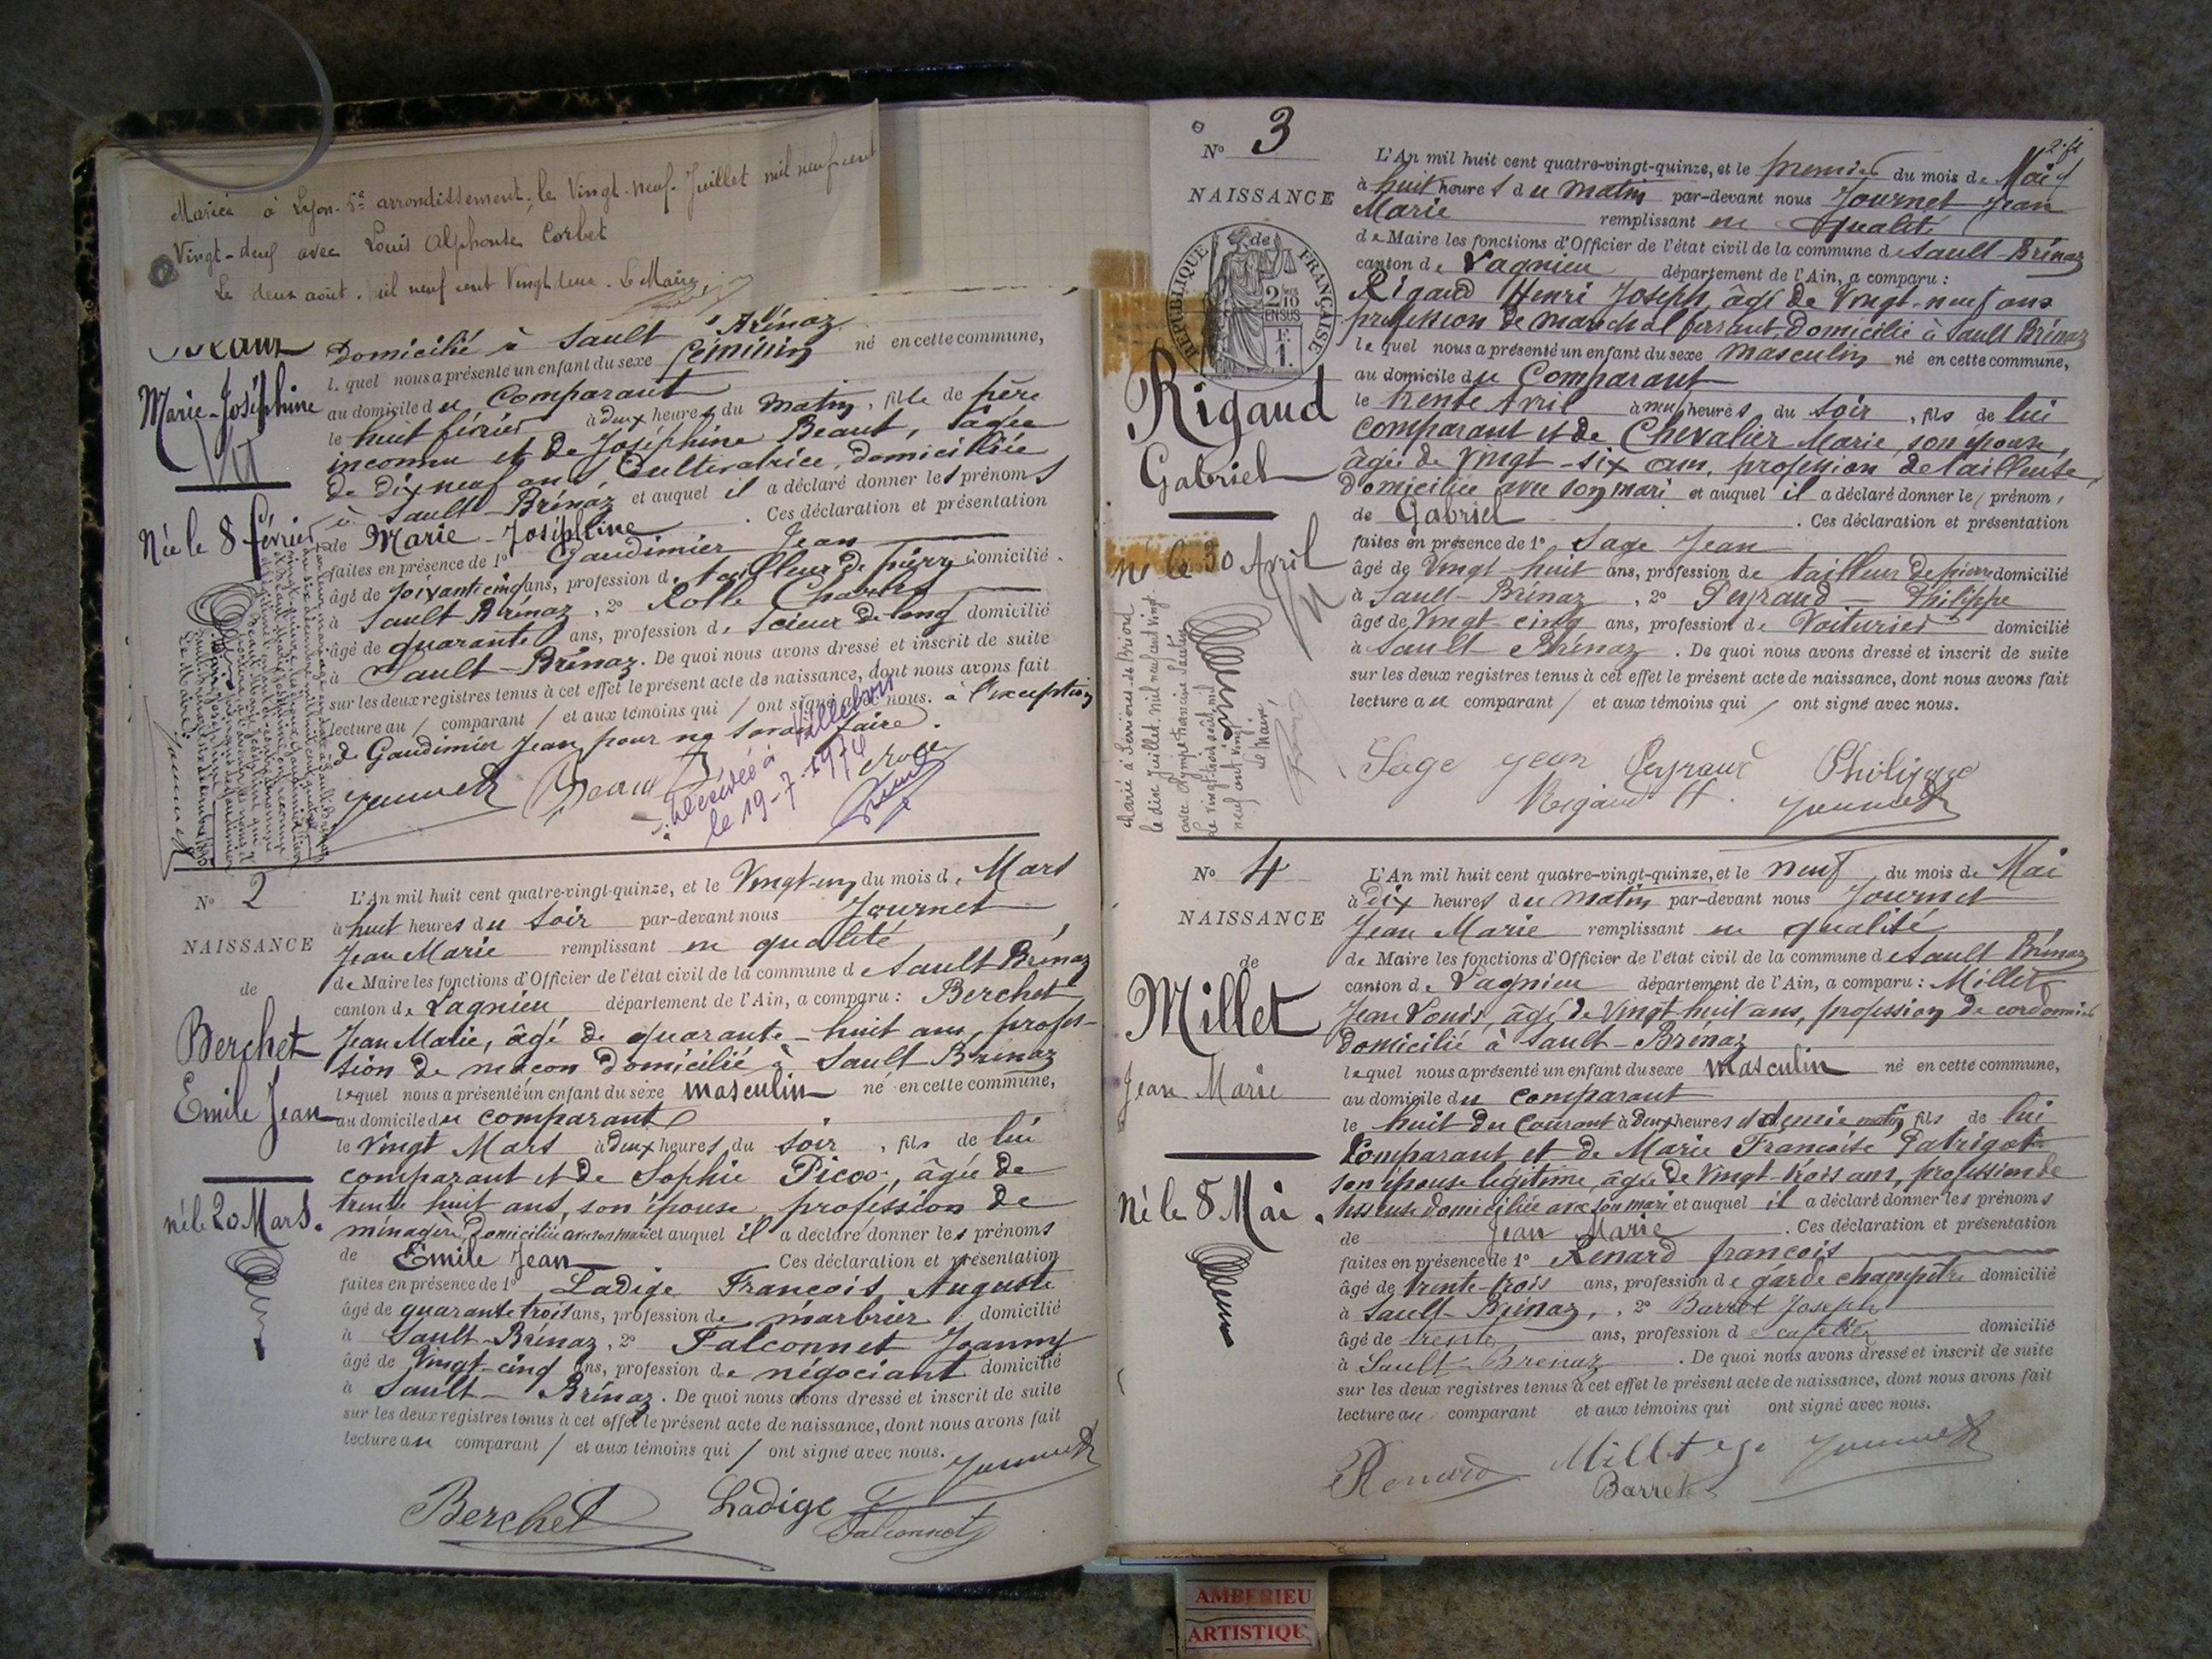 Mariée à Lyon 5e arrondissement, le Vingt-neuf Juillet mil neuf cent
Vingt-deux avec Louis Alphonse Corbet
Le deux août mil neuf cent Vingt deux. Le Maire
Marie-Joséphine
Vu
Née le 8 février
Domicilié à Sault Brénaz
lequel nous a présenté un enfant du sexe féminin né en cette commune,
au domicile du Comparant
le huit février à deux heures du matin, fille de père
inconnu et de Joséphine Beaut, âgée
de dix neuf ans, Cultivatrice, domiciliée
à Sault-Brénaz et auquel il a déclaré donner les prénoms
de Marie-Joséphine. Ces déclaration et présentation
faites en présence de 1° Gaudimier Jean
âgé de soixante cinq ans, profession de tailleur de pierre domicilié
à Sault Brénaz, 2° Rolle Charles
âgé de quarante ans, profession de Scieur de long domicilié
à Sault-Brénaz. De quoi nous avons dressé et inscrit de suite
sur les deux registres tenus à cet effet le présent acte de naissance, dont nous avons fait
lecture au comparant et aux témoins qui ont signé avec nous. à l'exception
de Gaudimier Jean pour ne savoir faire.
Journet
Décédée à Villebois
le 19-7-1974
No 2
NAISSANCE
de
Berchet
Emile Jean
né le 20 Mars.
L'An mil huit cent quatre-vingt-quinze, et le Vingt-un du mois de Mars
à huit heures du soir par-devant nous Journet
Jean Marie remplissant en qualité
de Maire les fonctions d'Officier de l'état civil de la commune de Sault Brénaz
canton de Lagnieu département de l'Ain, a comparu : Berchet
Jean Marie, âgé de quarante-huit ans, profes-
sion de maçon domicilié à Sault-Brénaz
lequel nous a présenté un enfant du sexe masculin né en cette commune,
au domicile du comparant
le Vingt Mars à deux heures du soir, fils de lui
comparant et de Sophie Picoo, âgée de
trente huit ans, son épouse, profession de
ménagère, Domiciliée avec son mari et auquel il a déclaré donner les prénoms
de Emile Jean Ces déclaration et présentation
faites en présence de 1° Ladige François Auguste
âgé de quarante trois ans, profession de marbrier domicilié
à Sault-Brénaz, 2° Falconnet Joanny
âgé de Vingt-cinq ans, profession de négociant domicilié
à Sault-Brénaz. De quoi nous avons dressé et inscrit de suite
sur les deux registres tenus à cet effet le présent acte de naissance, dont nous avons fait
lecture au comparant et aux témoins qui ont signé avec nous.
Journet
Berchet Ladige Falconnet
2 ft
No 3
NAISSANCE
de
RÉPUBLIQUE FRANÇAISE
2/10 EN SUS
1 F.
Rigaud
Gabriel
né le 30 Avril
Vu
Marié à Serrières-de-Briord
le dix Juillet mil neuf cent vingt
avec Olympe Francine Sautin
Le vingt-trois août mil
neuf cent vingt
Le Maire,
L'An mil huit cent quatre-vingt-quinze, et le premier du mois de Mai
à huit heures du matin par-devant nous Journet Jean
Marie remplissant en qualité
de Maire les fonctions d'Officier de l'état civil de la commune de Sault-Brénaz
canton de Lagnieu département de l'Ain, a comparu :
Rigaud Henri Joseph, âgé de Vingt-neuf ans
profession de maréchal ferrant, Domicilié à Sault Brénaz
lequel nous a présenté un enfant du sexe masculin né en cette commune,
au domicile du Comparant
le trente Avril à neuf heures du soir, fils de lui
comparant et de Chevalier Marie, son épouse,
âgée de vingt-six ans, profession de tailleuse,
domiciliée avec son mari et auquel il a déclaré donner le prénom
de Gabriel. Ces déclaration et présentation
faites en présence de 1° Sage Jean
âgé de Vingt-huit ans, profession de tailleur de pierre domicilié
à Sault-Brénaz, 2° Peyraud Philippe
âgé de Vingt-cinq ans, profession de Voiturier domicilié
à Sault Brénaz. De quoi nous avons dressé et inscrit de suite
sur les deux registres tenus à cet effet le présent acte de naissance, dont nous avons fait
lecture au comparant et aux témoins qui ont signé avec nous.
Sage Jean Peyraud Philippe
Rigaud H. Journet
No 4
NAISSANCE
de
Millet
Jean Marie
Né le 8 Mai.
L'An mil huit cent quatre-vingt-quinze, et le neuf du mois de Mai
à dix heures du matin par-devant nous Journet
Jean Marie remplissant en qualité
de Maire les fonctions d'Officier de l'état civil de la commune de Sault Brénaz
canton de Lagnieu département de l'Ain, a comparu : Millet
Jean Louis, âgé de Vingt huit ans, profession de cordonnier
domicilié à Sault-Brénaz
lequel nous a présenté un enfant du sexe masculin né en cette commune,
au domicile du comparant
le huit du Courant à deux heures et demie matin, fils de lui
Comparant et de Marie Françoise Patrigot
son épouse légitime, âgée de Vingt-trois ans, profession de
tisseuse domiciliée avec son mari et auquel il a déclaré donner les prénoms
de Jean Marie. Ces déclaration et présentation
faites en présence de 1° Renard françois
âgé de trente-trois ans, profession de garde champêtre domicilié
à Sault-Brénaz, 2° Barret Joseph
âgé de trente ans, profession de cafetier domicilié
à Sault-Brenaz. De quoi nous avons dressé et inscrit de suite
sur les deux registres tenus à cet effet le présent acte de naissance, dont nous avons fait
lecture au comparant et aux témoins qui ont signé avec nous.
Renard Millet Journet
Barret
AMBERIEU
ARTISTIQU